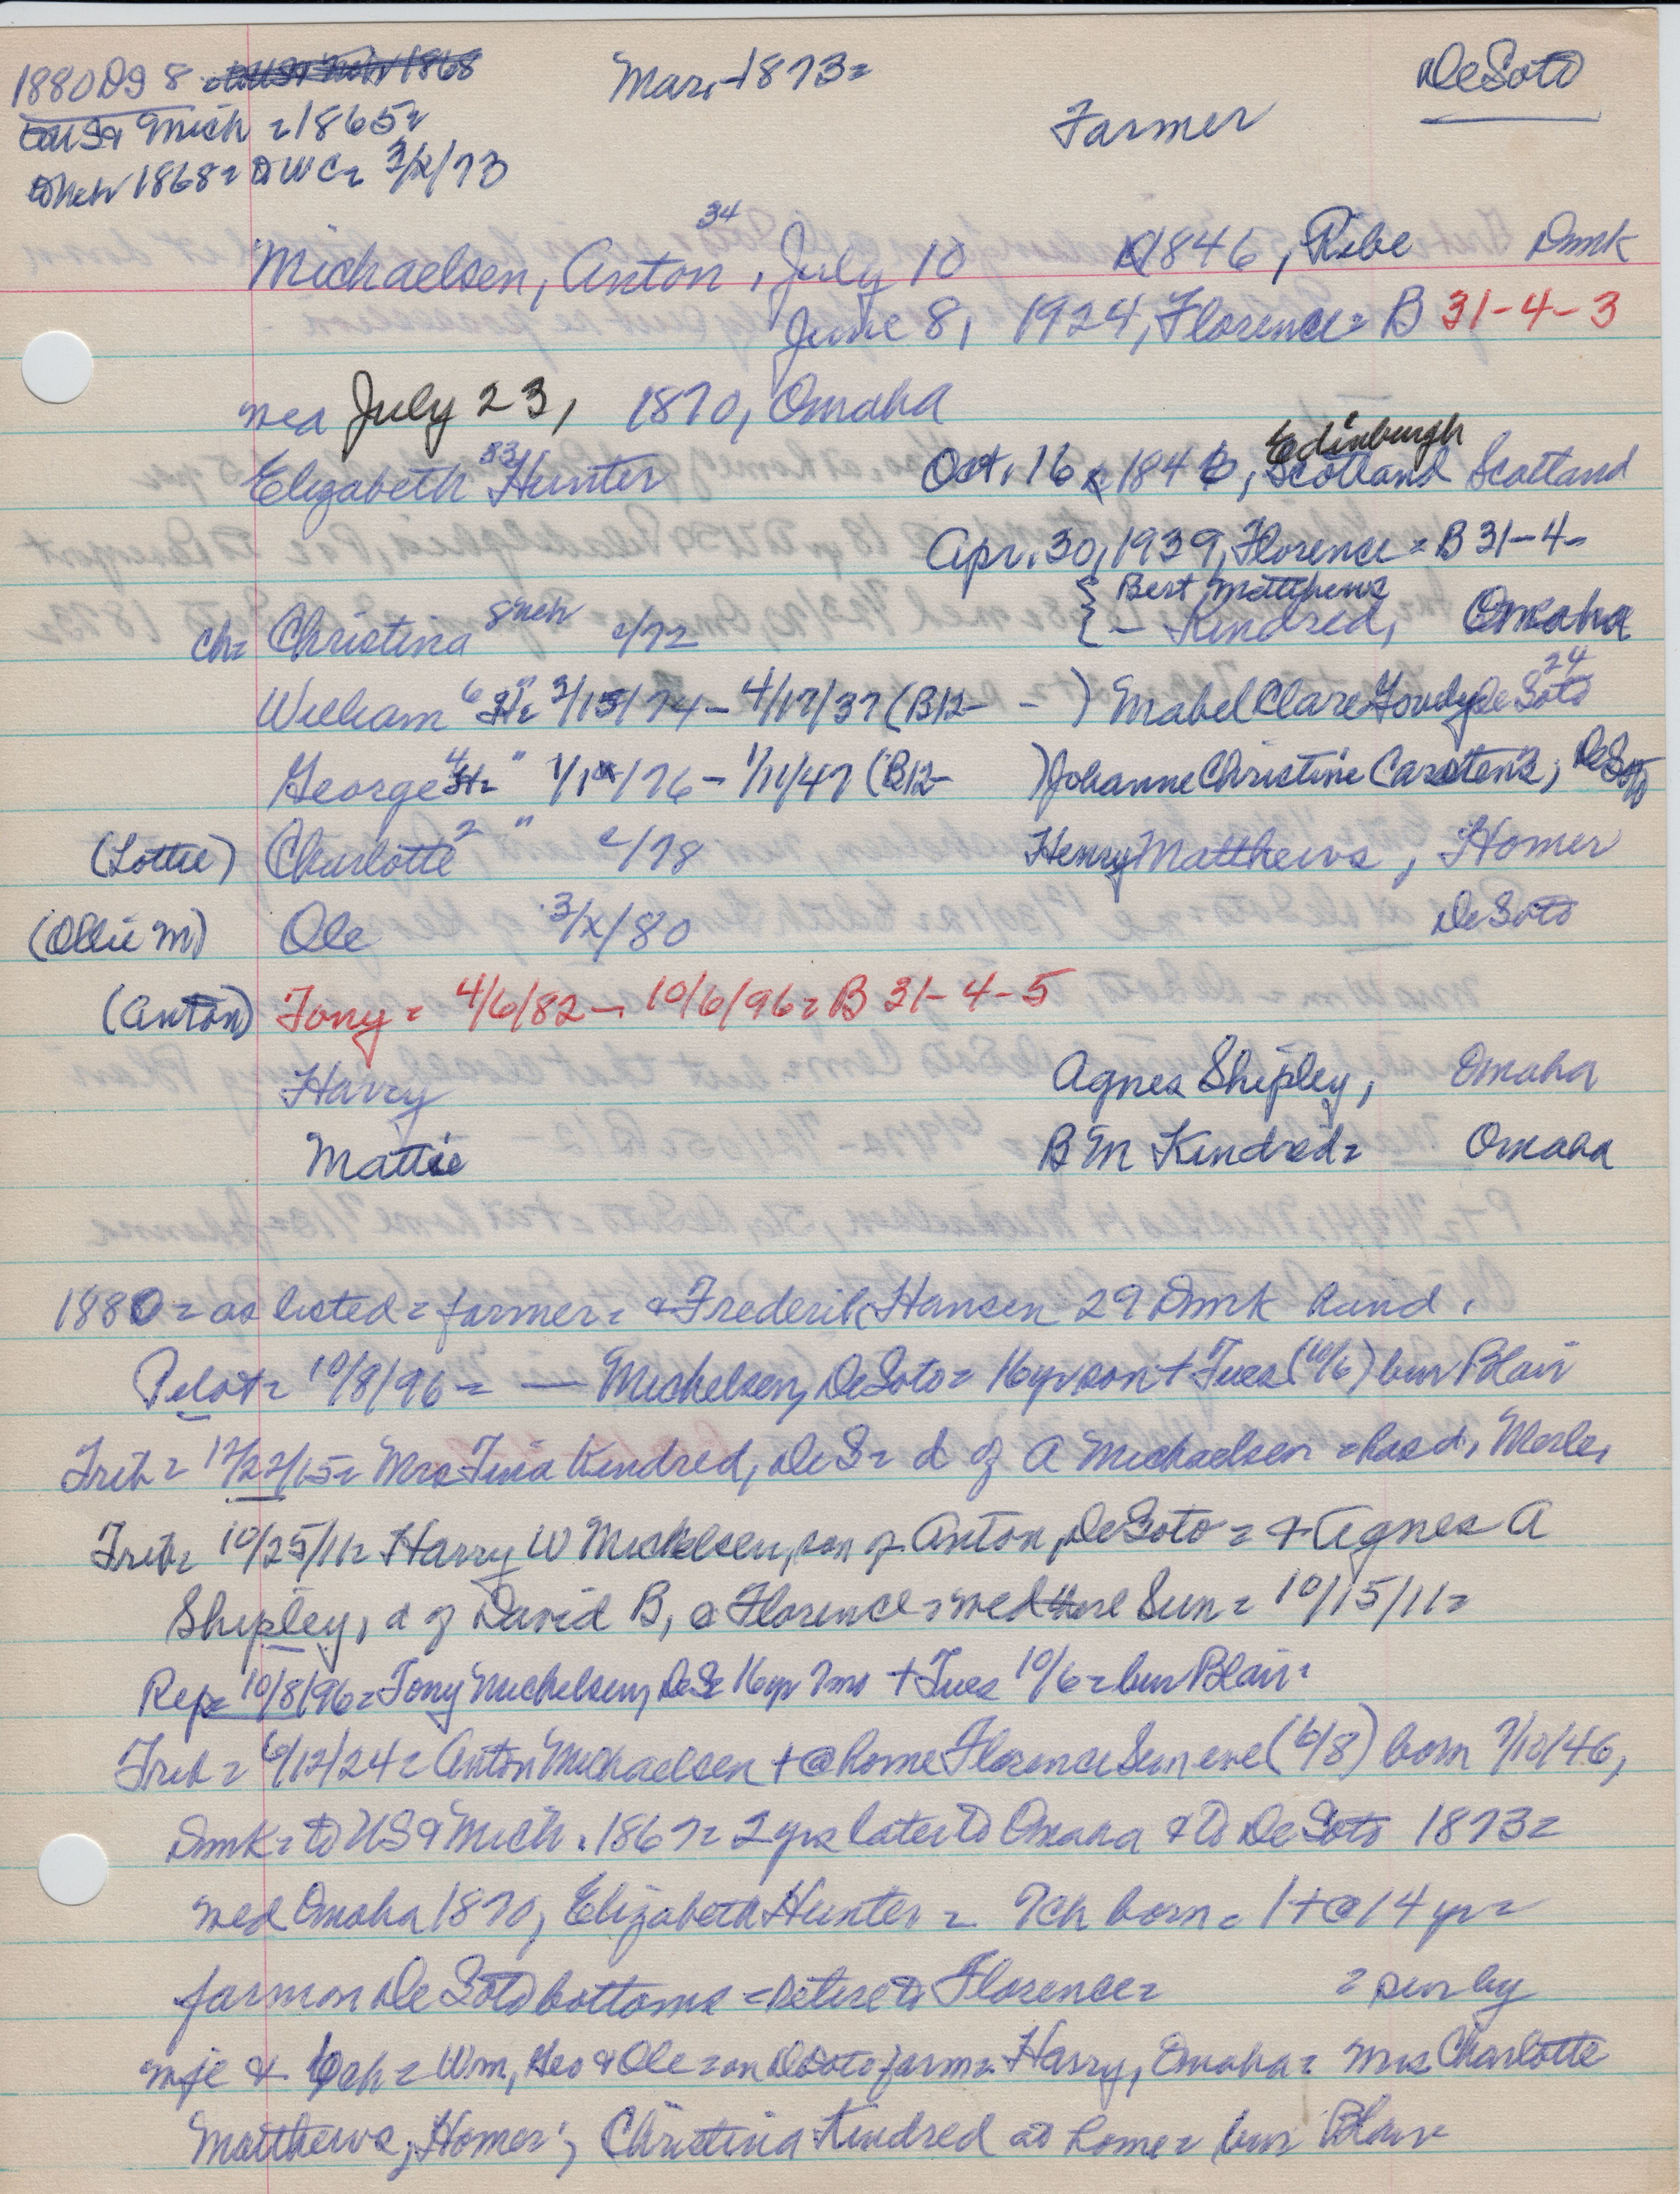 1880 Dg 8 to US & Nebr 1868 Mar, 1873= DeSoto
to US & Mich = 1865= Farmer
to Nebr 1868= to WC= 3/x/73
34
Michaelsen, Anton, July 10 1846, Ribe Dmk
June 8, 1924, Florence= B 31-4-3
wed July 23, 1870, Omaha
Edinburgh
Elizabeth 33 Hunter Oct. 16, 1846, Scotland Scotland
Apr. 30, 1939, Florence = B 31-4-
{ Bert Matthews
ch= Christina 8 Neb c/72 { - Kindred, Omaha
William 6 " 2/15/74 - 4/17/37 (B12- - ) Mabel Clare Goudy DeSoto 24
George 4 " 1/1x/76 - 1/11/47 (B12- ) Johanne Christine Carstens, DeSoto
(Lottie) Charlotte 2 " c/78 Henry Matthews, Homer
(Ollie M) Ole 3/x/80 DeSoto
(Anton) Tony = 4/6/82 - 10/6/96= B 31-4-5
Harry Agnes Shipley, Omaha
Mattie B M Kindred= Omaha
1880= as listed = farmer= & Frederik Hansen 29 Dmk hand.
Pilot= 10/8/96 = — Michelsen, DeSoto= 16 yr son + Tues (10/6) bur Blair
Trib= 12/27/15= Mrs Tina Kindred, DeS= d of A Michaelsen = has d, Merle,
Trib= 10/25/11= Harry W Mickelsen, son of Anton, DeSoto = & Agnes A
Shipley, d of David B, @ Florence = wed there Sun= 10/15/11=
Rep= 10/8/96= Tony Michelsen, DeS= 16 yr 7 mo + Tues 10/6= bur Blair=
Trib= 6/12/24= Anton Michaelsen + @ home Florence Sun eve (6/8) born 7/10/46,
Dmk= to US & Mich. 1867= 2 yrs later to Omaha & to DeSoto 1873=
wed Omaha 1870, Elizabeth Hunter = 7 ch born = 1 + @ 14 yr=
farm on De Soto bottoms = retire to Florence= = surv by
wife & 6 ch= Wm, Geo & Ole = on DeSoto farm= Harry, Omaha= Mrs Charlotte
Matthews, Homer; Christina Kindred at home= bur Blair